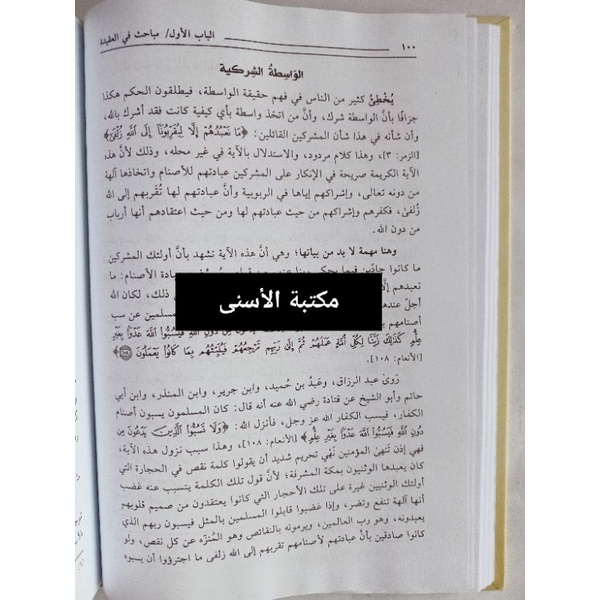 ١٠٠
الباب الأول/ مباحث في العقيدة
الوَاسِطةُ الشِركية
يُخْطِئُ كثير من الناس في فهم حقيقة الواسطة، فيطلقون الحكم هكذا
جزافًا بأنَّ الواسطة شرك، وأنَّ من اتخذ واسطة بأي كيفية كانت فقد أشرك بالله،
وأن شأنه في هذا شأن المشركين القائلين: ﴿مَا نَعْبُدُهُمْ إِلَّا لِيُقَرِّبُونَا إِلَى اللَّهِ زُلْفَىٰ﴾
[الزمر: ٣]، وهذا كلام مردود، والاستدلال بالآية في غير محله، وذلك لأنَّ هذه
الآية الكريمة صريحة في الإنكار على المشركين عبادتهم للأصنام واتخاذها آلهة
من دونه تعالى، وإشراكهم إياها في الربوبية وأنَّ عبادتهم لها تُقَربهم إلى الله
زُلفىٰ، فكفرهم وإشراكهم من حيث عبادتهم لها ومن حيث اعتقادهم أنها أرباب
من دون الله.
وهنا مهمة لا بد من بيانها؛ وهي أنَّ هذه الآية تشهد بأنَّ أولئك المشركين
ما كانوا جادِّين فيما يحكي ربنا عنهم عبادة الأصنام: ما
نعبدهم إلَّا ذلك، لكان الله
أجلّ عندهم المسلمين عن سب
أصنامهم مِن دُونِ اللَّهِ فَيَسُبُّوا اللَّهَ عَدْوًا بِغَيْرِ
عِلْمٍ كَذَٰلِكَ زَيَّنَّا لِكُلِّ أُمَّةٍ عَمَلَهُمْ ثُمَّ إِلَىٰ رَبِّهِم مَّرْجِعُهُمْ فَيُنَبِّئُهُم بِمَا كَانُوا يَعْمَلُونَ﴾
[الأنعام: ١٠٨].
رَوىٰ عبد الرزاق، وعَبدُ بن حُميد، وابن جرير، وابن المنذر، وابن أبي
حاتم وأبو الشيخ عن قتادة رضي الله عنه أنه قال: كان المسلمون يسبون أصنام
الكفار، فيسب الكفار الله عز وجل، فأنزل الله: ﴿وَلَا تَسُبُّوا الَّذِينَ يَدْعُونَ مِن
دُونِ اللَّهِ فَيَسُبُّوا اللَّهَ عَدْوًا بِغَيْرِ عِلْمٍ﴾ [الأنعام: ١٠٨]، وهذا سبب نزول هذه الآية،
فهي إذن تَنهىٰ المؤمنين نَهْي تحريم شديد أن يقولوا كلمة نقص في الحجارة التي
كان يعبدها الوثنيون بمكة المشرفة؛ لأنَّ قول تلك الكلمة يتسبب عنه غضب
أولئك الوثنيين غيرة على تلك الأحجار التي كانوا يعتقدون من صميم قلوبهم
أنها آلهة تنفع وتضر، وإذا غضبوا قابلوا المسلمين بالمثل فيسبون ربهم الذي
يعبدونه، وهو رب العالمين، ويرمونه بالنقائص وهو المُنزَّه عن كل نقص، ولو
كانوا صادقين بأنَّ عبادتهم لأصنامهم تقربهم إلى الله زلفى ما اجترؤوا أن يسبوه
مكتبة الأسنى